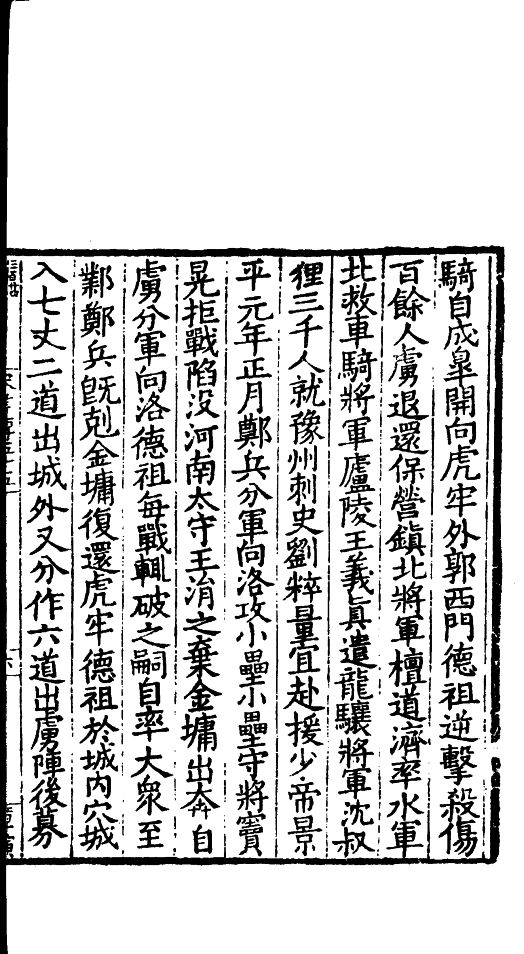 騎自成臯開向虎牢外郭西門德祖逆擊殺傷
百餘人虜退還保營鎮北將軍檀道濟率水軍
北救車騎將軍廬陵王義眞遣龍驤將軍沈叔
狸三千人就豫州刺史劉粹量宜赴援少帝景
平元年正月鄭兵分軍向洛攻小壘小壘守將竇
晃拒戰陷没河南太守王涓之棄金墉出奔自
虜分軍向洛德祖每戰輒破之嗣自率大衆至
鄴鄭兵旣剋金墉復還虎牢德祖於城内穴城
入七丈二道出城外又分作六道出虜陣後募